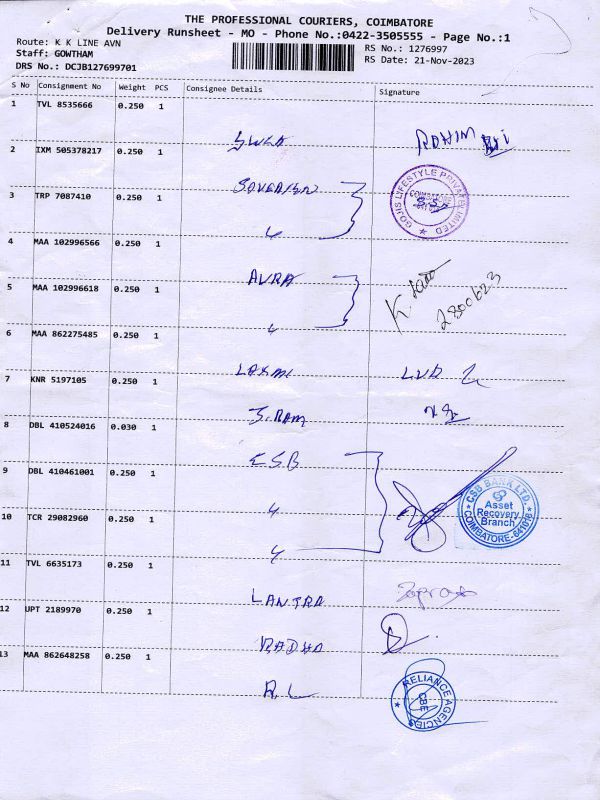 THE PROFESSIONAL COURIERS, COIMBATORE
Delivery Runsheet - MO - Phone No.:0422-3505555 - Page No.:1
Route: K K LINE AVN
Staff: GOWTHAM
DRS No.: DCJB127699701
RS No.: 1276997
RS Date: 21-Nov-2023
S No Consignment No Weight PCS Consignee Details Signature
1 TVL 8535666 0.250 1
2 IXM 505378217 0.250 1
3 TRP 7087410 0.250 1
GOJIS LIFESTYLE PRIVATE LIMITED
4 MAA 102996566 0.250 1
AVRA
5 MAA 102996618 0.250 1
K.
2800623
6 MAA 862275485 0.250 1
LAXMI
7 KNR 5197105 0.250 1
8 DBL 410524016 0.030 1
CSB
9 DBL 410461001 0.250 1
CSB BANK LTD.
Asset
Recovery
Branch
COIMBATORE-641018
10 TCR 29082960 0.250 1
11 TVL 6635173 0.250 1
12 UPT 2189970 0.250 1
RADHA
13 MAA 862648258 0.250 1
R.L
RELIANCE AGENCIES
CBE